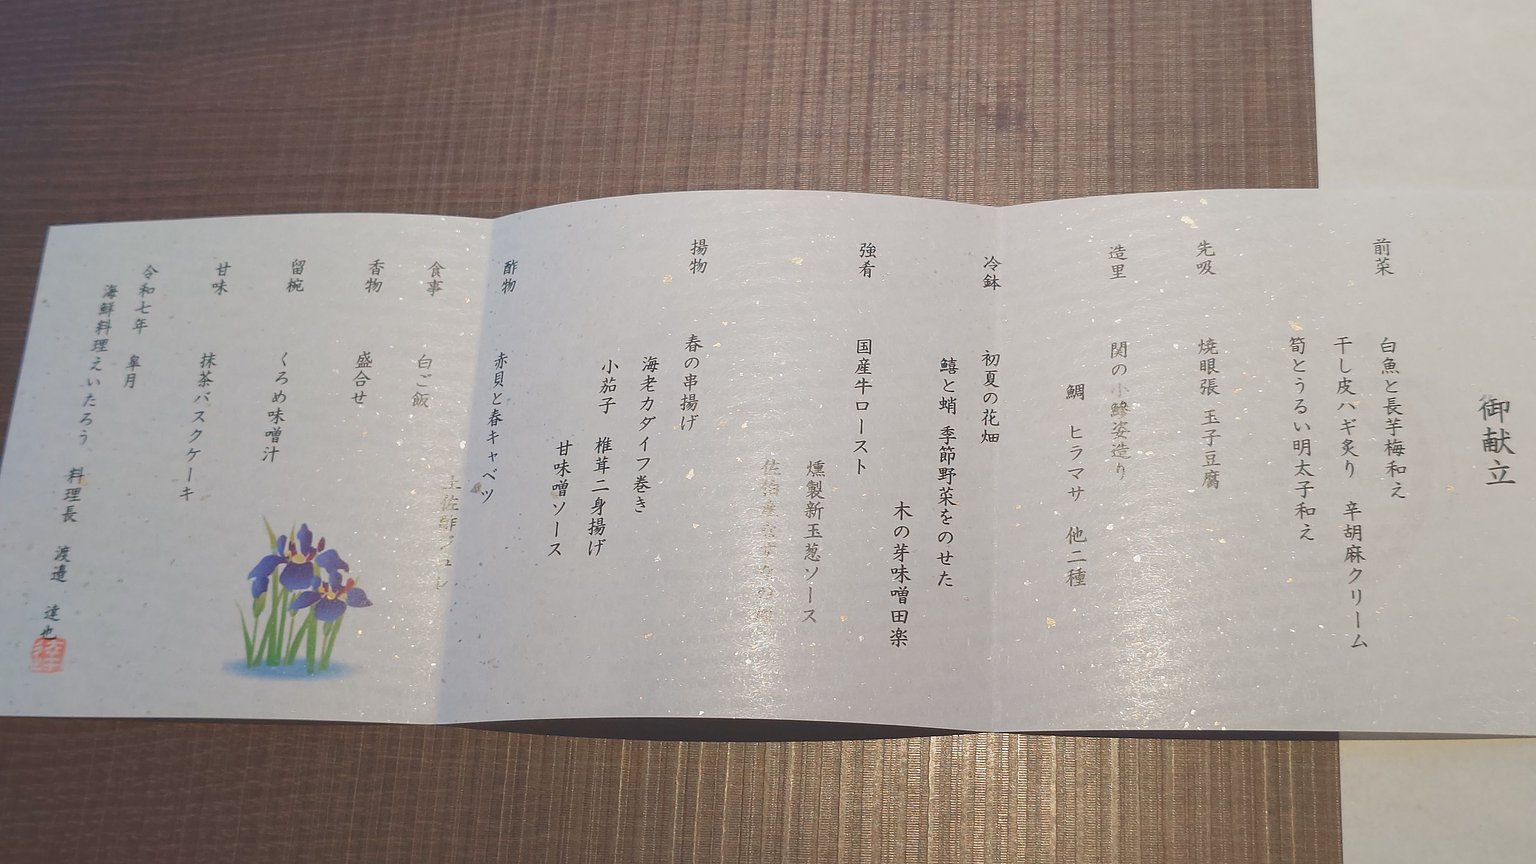 御献立
前菜
白魚と長芋梅和え
干し皮ハギ炙り 辛胡麻クリーム
筍とうるい明太子和え
先吸
焼眼張 玉子豆腐
造里
関の小鯵姿造り
鯛 ヒラマサ 他二種
冷鉢
初夏の花畑
鱚と蛸 季節野菜をのせた
木の芽味噌田楽
強肴
国産牛ロースト
燻製新玉葱ソース
佐伯産
揚物
春の串揚げ
海老カダイフ巻き
小茄子 椎茸二身揚げ
甘味噌ソース
酢物
赤貝と春キャベツ
土佐酢ジュレ
食事
白ご飯
香物
盛合せ
留椀
くろめ味噌汁
甘味
抹茶バスクケーキ
令和七年 皐月
海鮮料理えいたろう 料理長 渡邉 達也